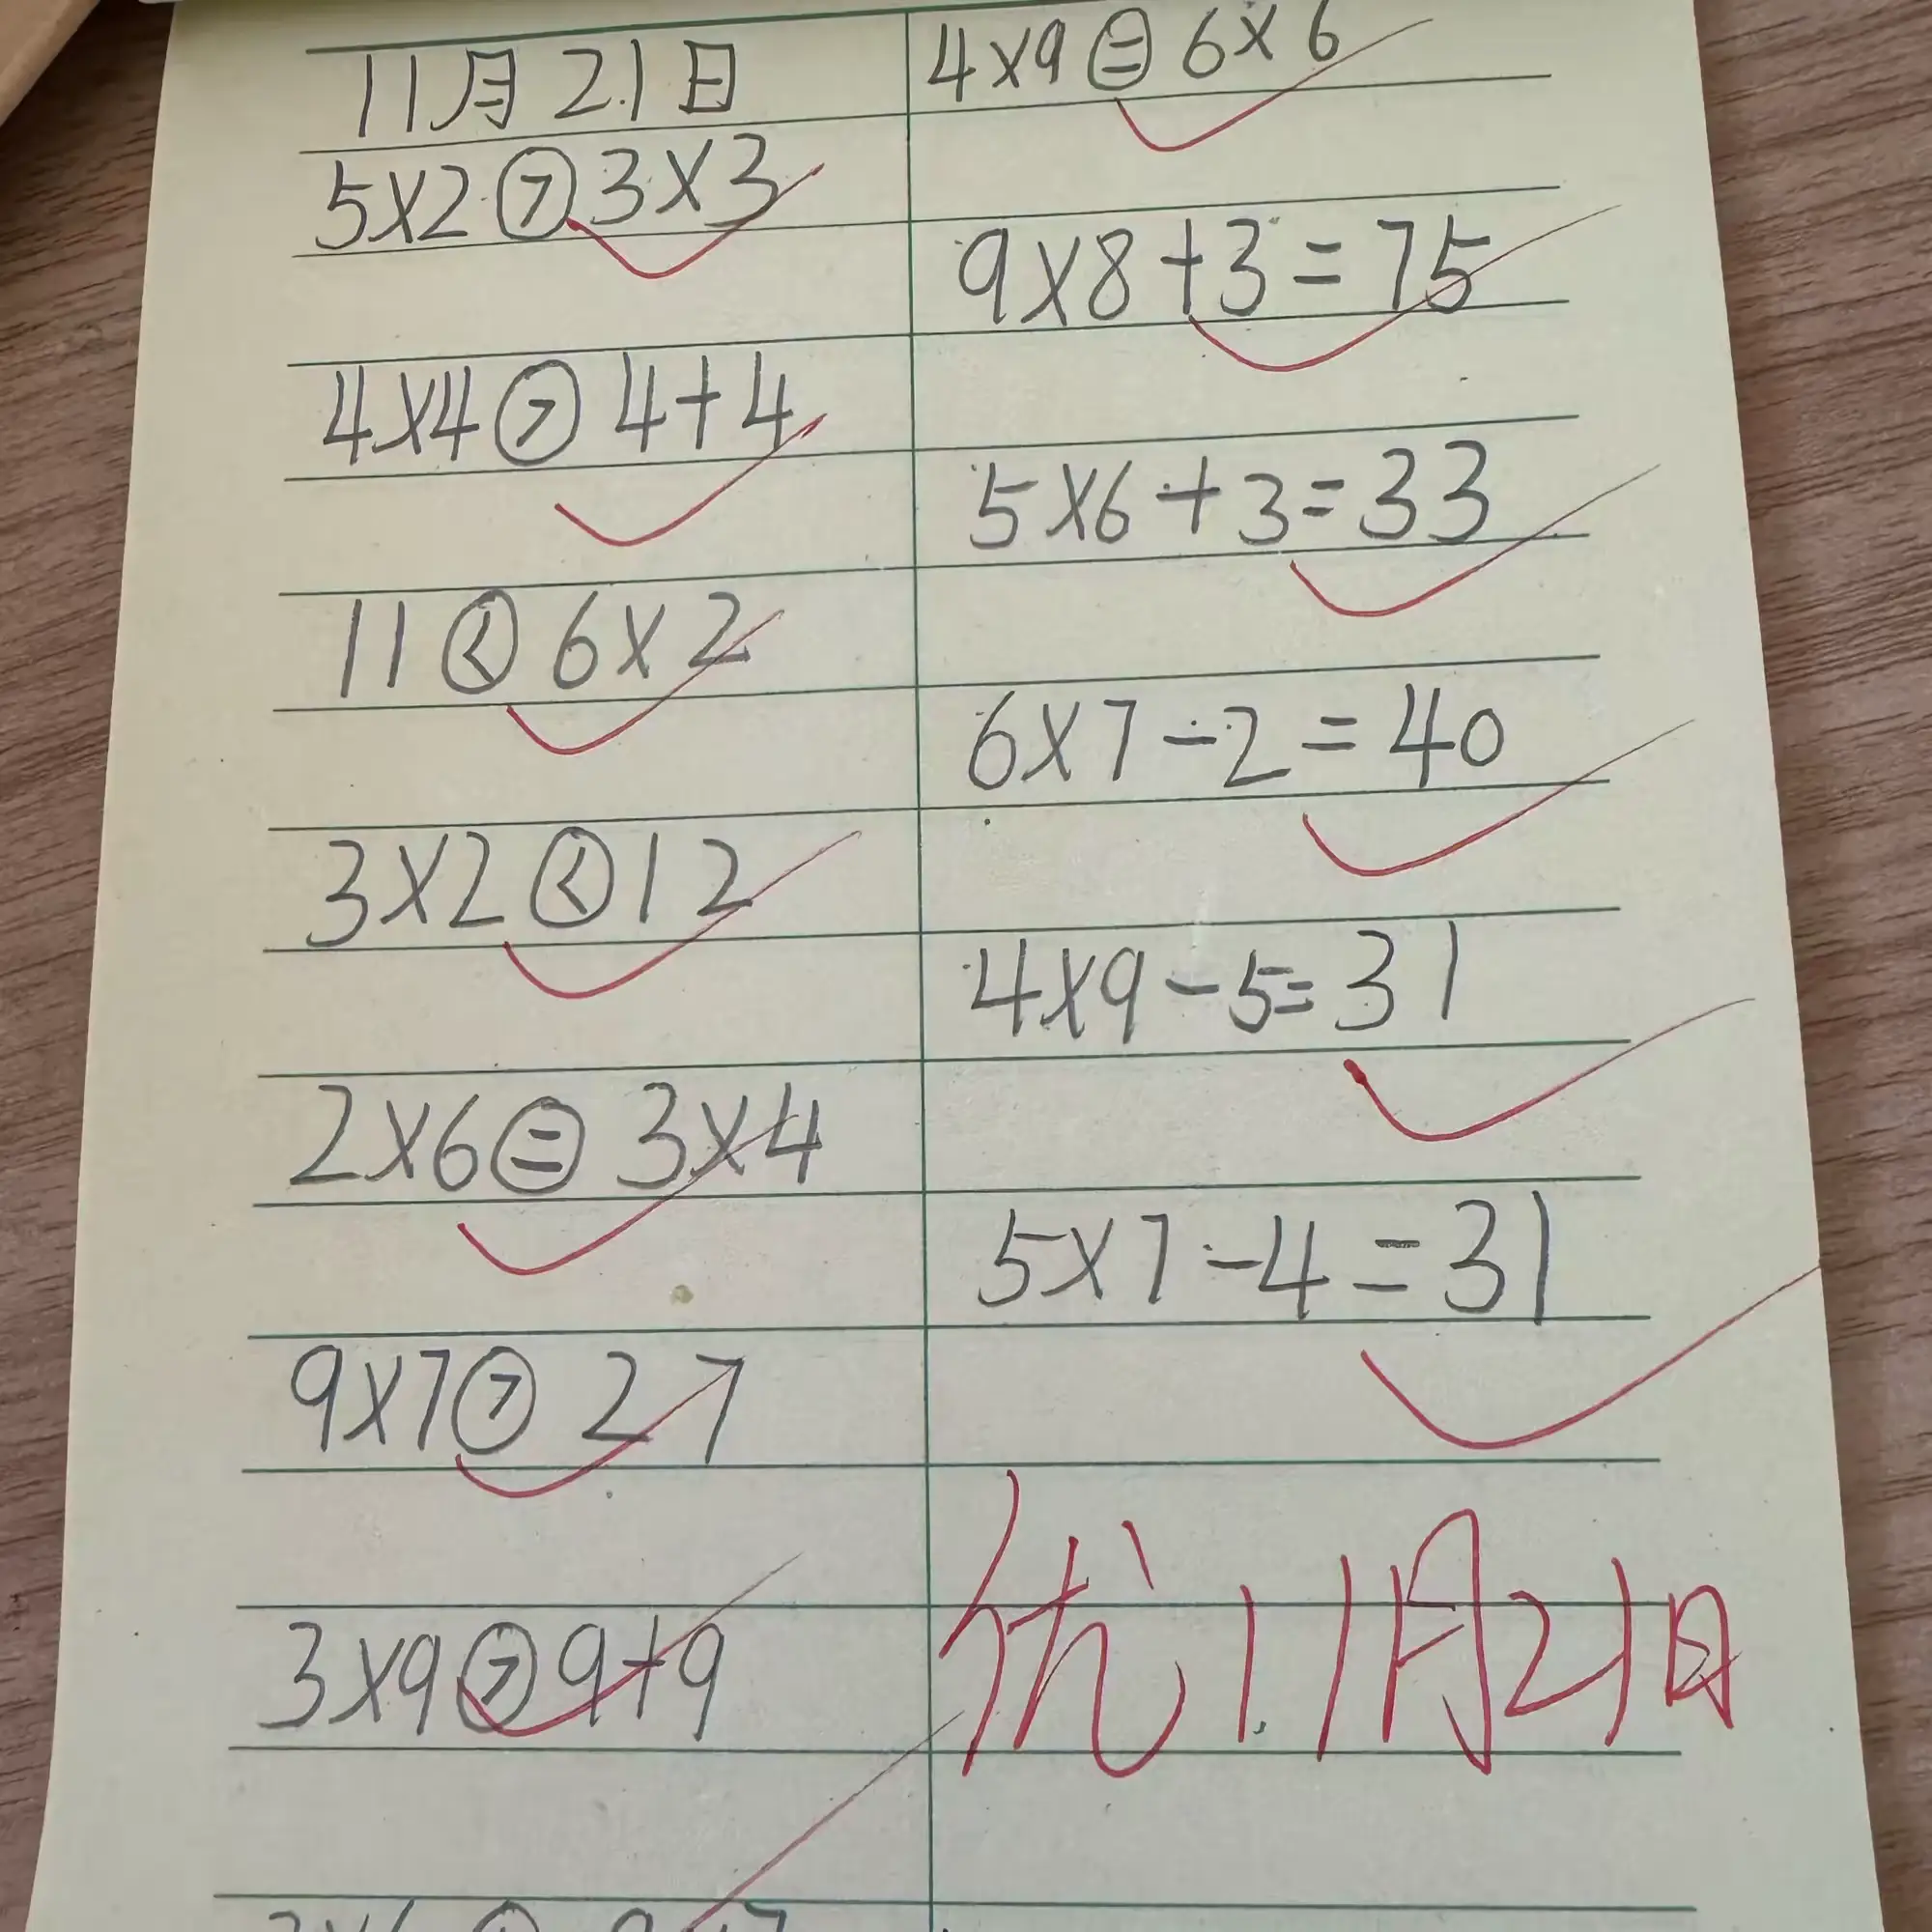 11月21日
5×2>3×3
4×4>4+4
11<6×2
3×2<12
2×6=3×4
9×7>27
3×9>9+9
4×9=6×6
9×8+3=75
5×6+3=33
6×7-2=40
4×9-5=31
5×7-4=31
优11月21日